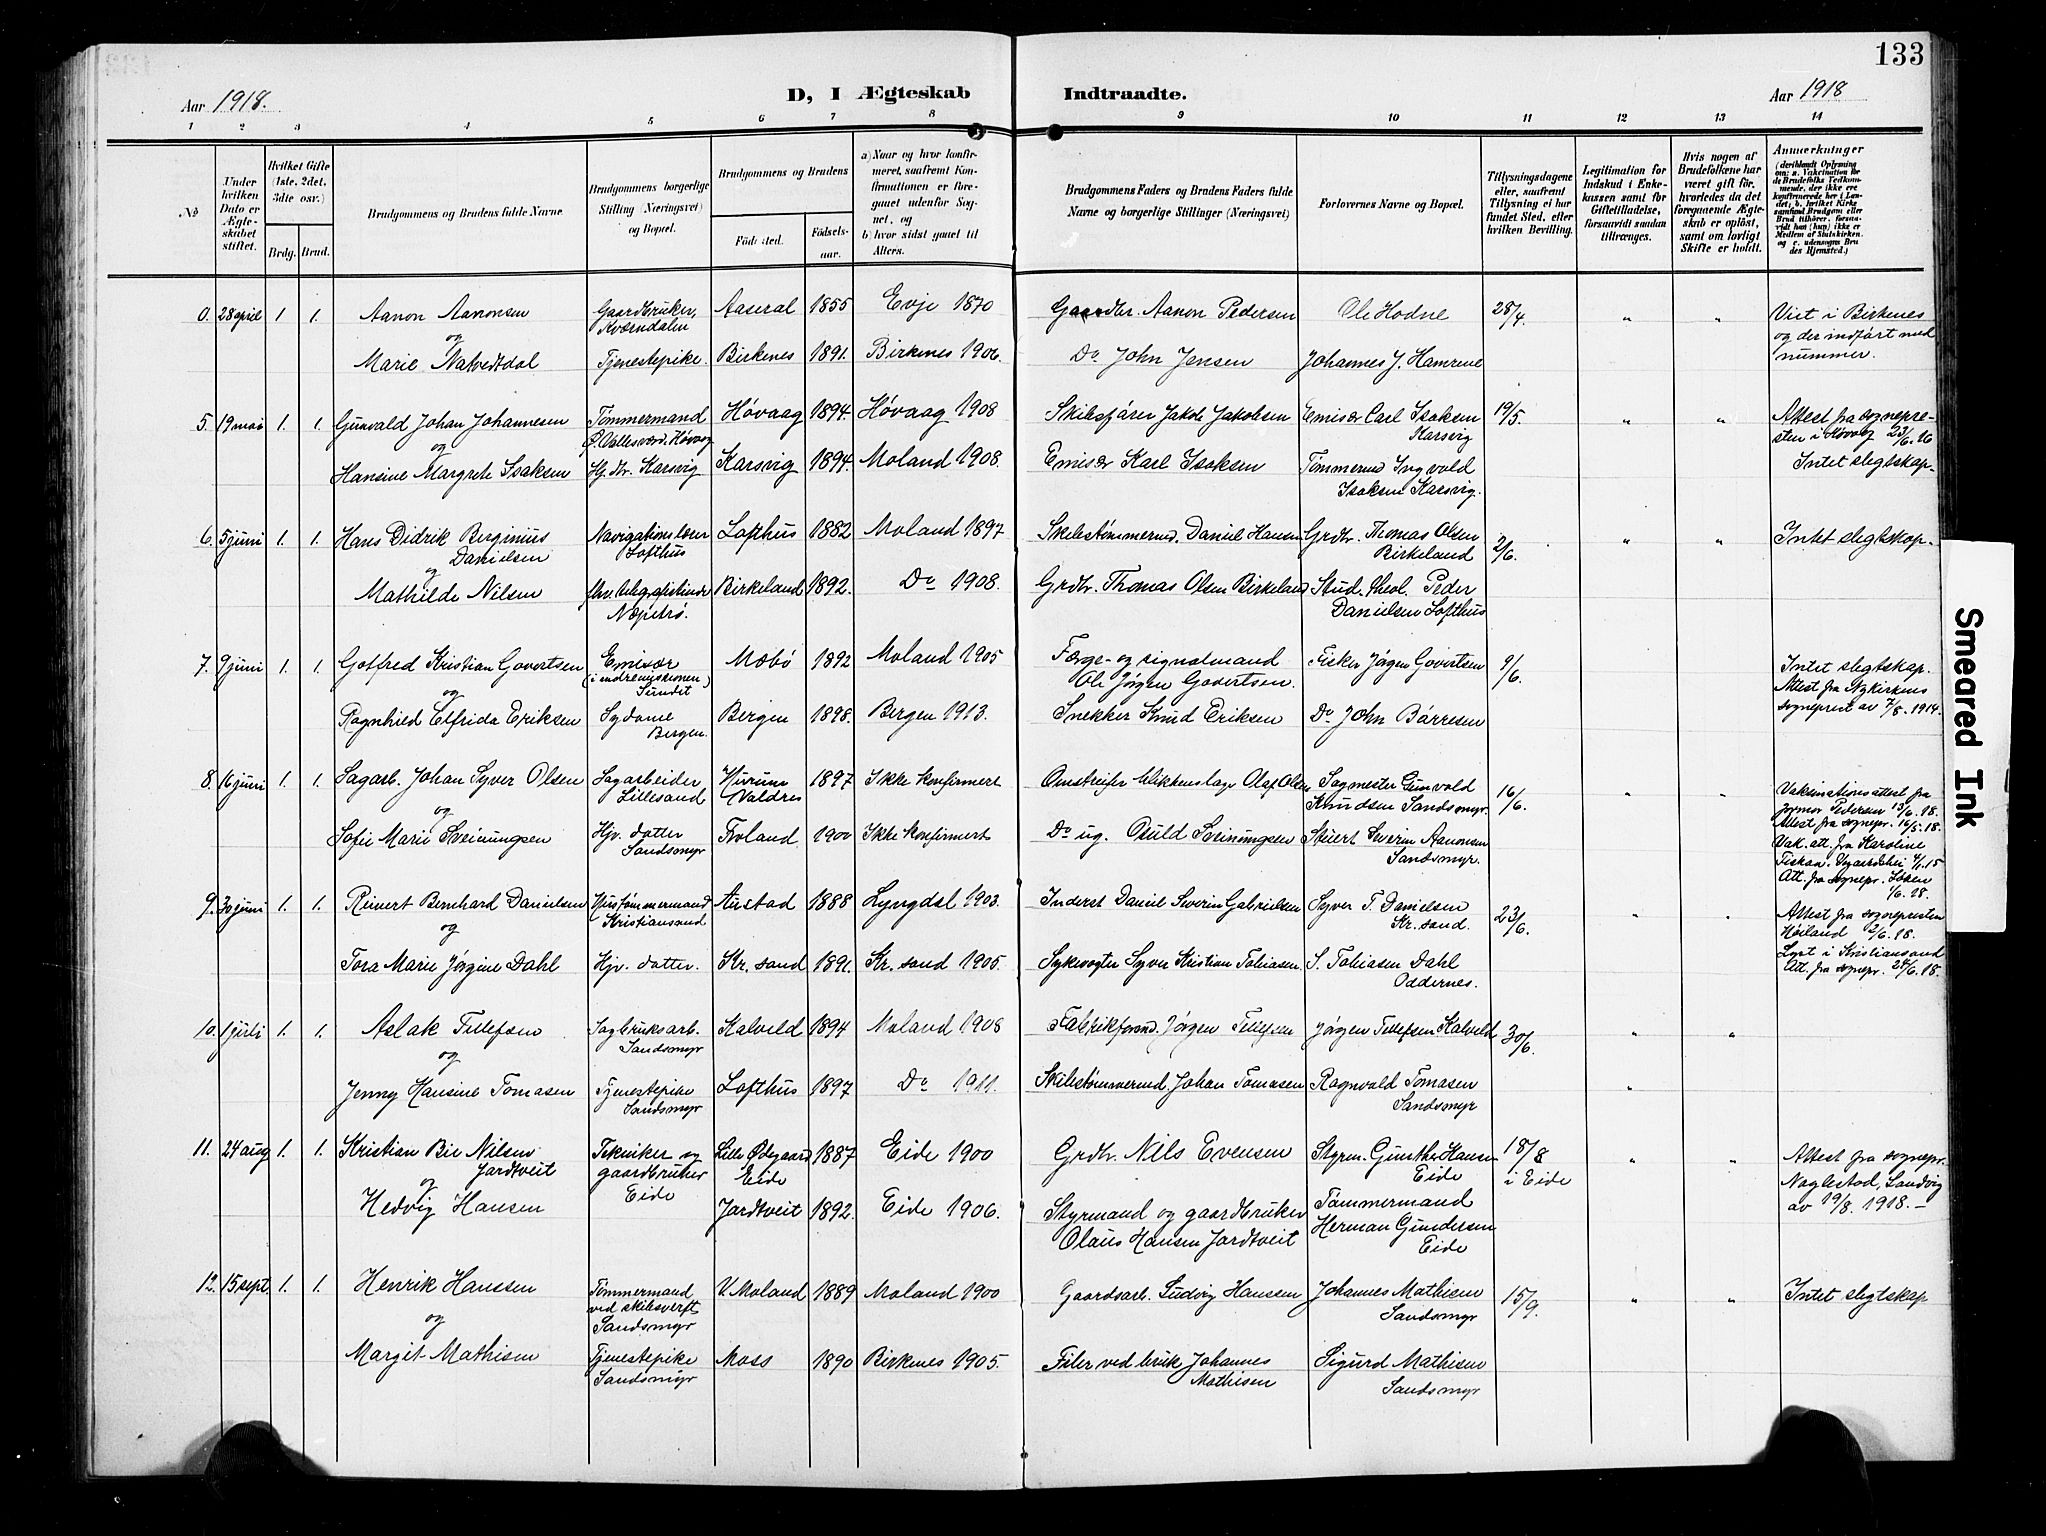 133
Aar 1918.
D, I Ægteskab
Indtraadte.
Aar 1918
1 2 3 4 5 6 7 8 9 10 11 12 13 14
No
Under hvilken Dato er Ægteskabet stiftet.
Hvilket Gifte (1ste, 2det, 3die osv.)
Brdg. Brud.
Brudgommens og Brudens fulde Navne.
Brudgommens borgerlige Stilling (Næringsvei) og Bopæl.
Brudgommens og Brudens
Fødested.
Fødselsaar.
a) Naar og hvor konfirmeret, saafremt Konfirmationen er foregaaet udenfor Sognet, og
b) hvor sidst gaaet til Alters.
Brudgommens Faders og Brudens Faders fulde Navne og borgerlige Stillinger (Næringsvei)
Forlovernes Navne og Bopæl.
Tillysningsdagene eller, saafremt Tillysning ei har fundet Sted, efter hvilken Bevilling.
Legitimation for Indskud i Enkekassen samt for Giftetilladelse, forsaavidt saadan tiltrænges.
Hvis nogen af Brudefolkene har været gift før, hvorledes da det foregaaende Ægteskab er opløst, samt om lovligt Skifte er holdt.
Anmærkninger
0. 28 april 1 1. Aanon Aanonsen Gaardbruker, Kværndalen Aaseral 1855 Evje 1870 Gaardbr. Aanon Pedersen Ole Hodne 28/4 " " Viet i Birkenes og der indført med nummer.
og
Marie Natvedtdal Tjenestepike. Birkenes 1891. Birkenes 1906. Do John Jensen Johannes J. Hamrene
5. 19 mai 1. 1. Gunvald Johan Johannesen Tømmermand Ø. Vallesverd. Høvaag Høvaag 1894. Høvaag 1908 Skibsfører Jakob Jakobsen Emisær Carl Isaksen Karsvig 19/5. " " Attest fra sognepresten i Høvaag 23/6. 16
og
Hansine Margrete Isaksen Hj. dtr. Karsvig Karsvig 1894. Moland 1908. Emisær Karl Isaksen Tømmermd Ingvald Isaksen Karsvig. Intet slegtskap.
6. 5 juni 1. 1. Hans Didrik Berginius Danielsen Navigationslærer Lofthus Lofthus 1882 Moland 1897 Skibstømmermd. Daniel Hansen Grdbr. Thomas Olsen Birkeland 2/6. " " Intet slegtskap.
og
Mathilde Nilsen Birkeland 1892. Do 1908. Grdbr. Thomas Olsen Birkeland Stud. theol. Peder Danielsen Lofthus
7. 9 juni 1. 1. Gotfred Kristian Govertsen Emisær (i indremissionen) Sundet Mæbø 1892 Moland 1905 Færge- og signalmand Ole Jørgen Govertsen. Fisker Jørgen Govertsen 9/6. Intet slegtskap.
og
Ragnhild Elfrida Eriksen Sydame Bergen. Bergen 1898. Bergen 1913. Snekker Knud Eriksen Do John Børresen Attest fra Nykirkens sogneprest av 7/8. 1914.
8. 16 juni 1. 1. Sagarb. Johan Syver Olsen Sagarbeider Lillesand Hurum Valdres 1897 Ikke konfirmert Omstreifer blikkenslager Olaf Olsen Sagmester Gunvald Knudsen Sandsmyr. 16/6. " " Vaksinationsattest fra jormor Pedersen 13/6. 18. Attest fra sognepr. 16/5. 18.
og
Sofie Marie Sveinungsen Hjv. datter Sandsmyr Froland 1900 Ikke konfirmert Do ug. Osuld Sveinungsen Skiert Severin Aanonsen Sandsmyr. Vak. att. fra Karoline
9. 30 juni 1. 1. Reinert Bernhard Danielsen Hustømmermand Kristiansand Austad 1888 Lyngdal 1903. Inderst Daniel Severin Gabrielsen Syver T. Danielsen Kr. sand. 23/6. " " Attest fra sognepresten Høiland 2/6. 18.
og
Tora Marie Jørgine Dahl Hjv. datter. Kr. sand 1891. Kr. sand 1905. Sykevogter Syver Kristian Tobiasen. S. Tobiasen Dahl Oddernes. Lyst i Kristiansand Att. fra sognepr. 24/6. 18.
10. 1 juli 1. 1. Aslak Tellefsen Sagbruksarb. Sandsmyr Kalveld 1894 Moland 1908 Fabrikformd. Jørgen Tellefsen Jørgen Tellefsen Kalveld 30/6. " "
og
Jenny Hansine Tomasen Tjenestepike Sandsmyr Lofthus 1897 Do 1911. Skibstømmermd. Johan Tomasen Ragnvald Tomasen Sandsmyr "
11. 24 aug 1. 1. Kristian Bie Nilsen Jardtveit Tekniker og gaardbruker Eide Lille Ødegaard Eide 1887 Eide 1900 Grdbr. Nils Evensen Styrm. Gunthe Hansen Eide 18/8 i Eide " " Attest fra sognepr. Naglestad, Landvig av 19/8. 1918. –
og
Hedvig Hansen Jardtveit 1892. Eide 1906. Styrmand og gaardbruker Olaus Hansen Jardtveit Tømmermand Herman Gundersen Eide
12. 15 sept. 1. 1. Henrik Hanssen Tømmermand ved skibsverft Sandsmyr V. Moland 1889 Moland 1900 Gaardsarb. Ludvig Hanssen Johannes Mathisen Sandsmyr 15/9. " " Intet slegtskap
og
Margit Mathisen Tjenestepike Sandsmyr Moss 1890 Birkenes 1905. Filer ved bruk Johannes Mathisen Sigurd Mathisen Sandsmyr
Smeared Ink